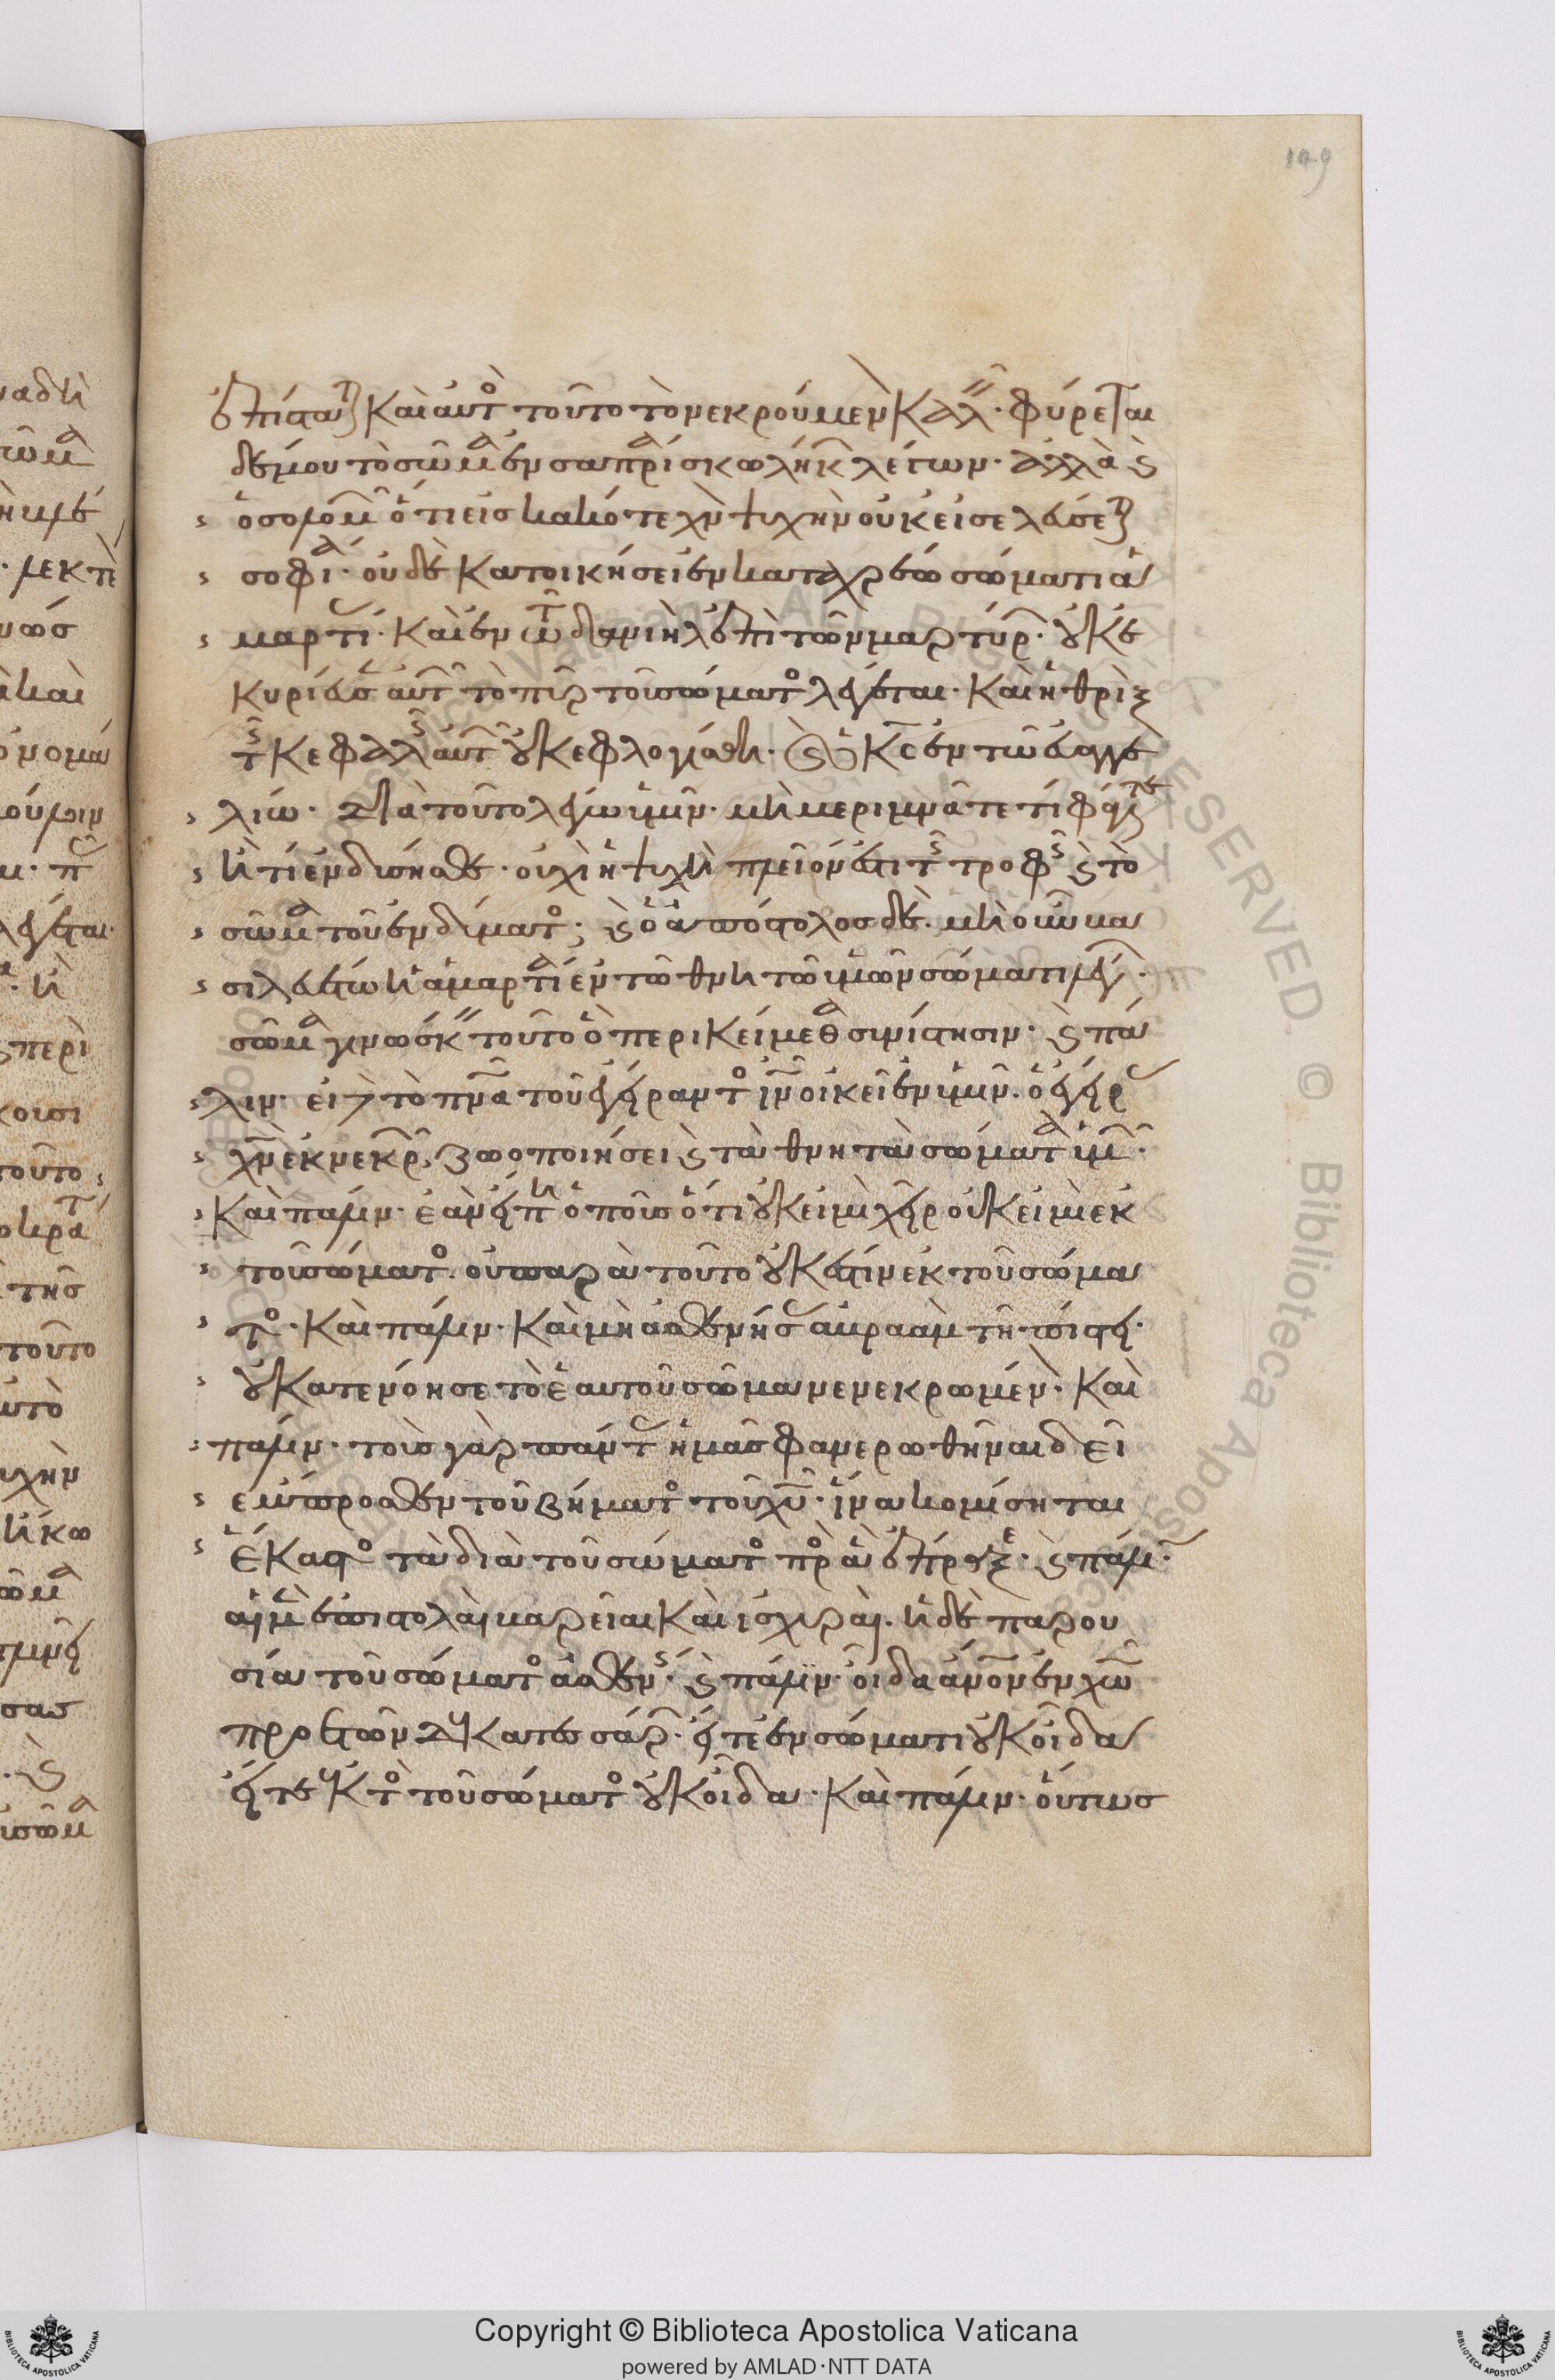 109
ἐπίσταται καὶ αὐτὸς τοῦτο τὸ νεκρούμενον καλεῖν. φύρεται
δέ μου τὸ σῶμα ἐν σαπρίᾳ σκωλήκων λέγων. ἀλλὰ καὶ
ὁ σολομῶν ὅτι εἰς κακότεχνον ψυχὴν οὐκ εἰσελεύσεται
σοφία. οὐδὲ κατοικήσει ἐν κατάχρεω σώματι ἁ
μαρτίας. καὶ ἐν τῷ δανιὴλ ἐπὶ τῶν μαρτύρων. οὐκ ἐ
κυρίευσεν αὐτῶν τὸ πῦρ τοῦ σώματος λέγεται. καὶ ἡ θρὶξ
τῆς κεφαλῆς αὐτῶν οὐκ ἐφλογίσθη. καὶ ὁ κύριος ἐν τῶ εὐαγγε
λίω. διὰ τοῦτο λέγω ὑμῖν. μὴ μεριμνᾶτε τί φάγητε
ἢ τί ἐνδύσησθε. οὐχὶ ἡ ψυχὴ πλεῖόν ἐστι τῆς τροφῆς καὶ τὸ
σῶμα τοῦ ἐνδύματος; καὶ ὁ ἀπόστολος δὲ. μὴ οὖν βα
σιλευέτω ἡ ἁμαρτία ἐν τῶ θνητῶ ὑμῶν σώματι λέγων.
σῶμα γινώσκειν τοῦτο ὃ περικείμεθα συνίστησιν. καὶ πά
λιν. εἰ δὲ τὸ πνεῦμα τοῦ ἐγείραντος ἰησοῦν οἰκεῖ ἐν ὑμῖν. ὁ ἐγείρας
χριστὸν ἐκ νεκρῶν, ζωοποιήσει καὶ τὰ θνητὰ σώματα ὑμῶν.
καὶ πάλιν. ἐὰν εἴπη ὁ ποῦς ὅτι οὐκ εἰμὶ χεὶρ οὐκ εἰμὶ ἐκ
τοῦ σώματος. οὐ παρὰ τοῦτο οὐκ ἔστιν ἐκ τοῦ σώμα
τος. καὶ πάλιν. καὶ μὴ ἀσθενήσας ἀβραὰμ τῆ πίστει.
οὐ κατενόησε τὸ ἑαυτοῦ σῶμα νενεκρωμένον. καὶ
πάλιν. τοὺς γὰρ πάντας ἡμᾶς φανερωθῆναι δεῖ
ἔμπροσθεν τοῦ βήματος τοῦ χριστοῦ. ἵνα κομίσηται
ἕκαστος τὰ διὰ τοῦ σώματος πρὸς ἃ ἔπραξε. καὶ πάλιν.
αἱ μὲν ἐπιστολαὶ βαρεῖαι καὶ ἰσχυραί. ἡ δὲ παρου
σία τοῦ σώματος ἀσθενής. καὶ πάλιν. οἶδα ἄνθρωπον ἐν χριστῶ
πρὸ ἐτῶν δεκατεσσάρων. εἴτε ἐν σώματι οὐκ οἶδα
εἴτε ἐκτὸς τοῦ σώματος οὐκ οἶδα. καὶ πάλιν. οὕτως
Copyright © Biblioteca Apostolica Vaticana
powered by AMLAD·NTT DATA